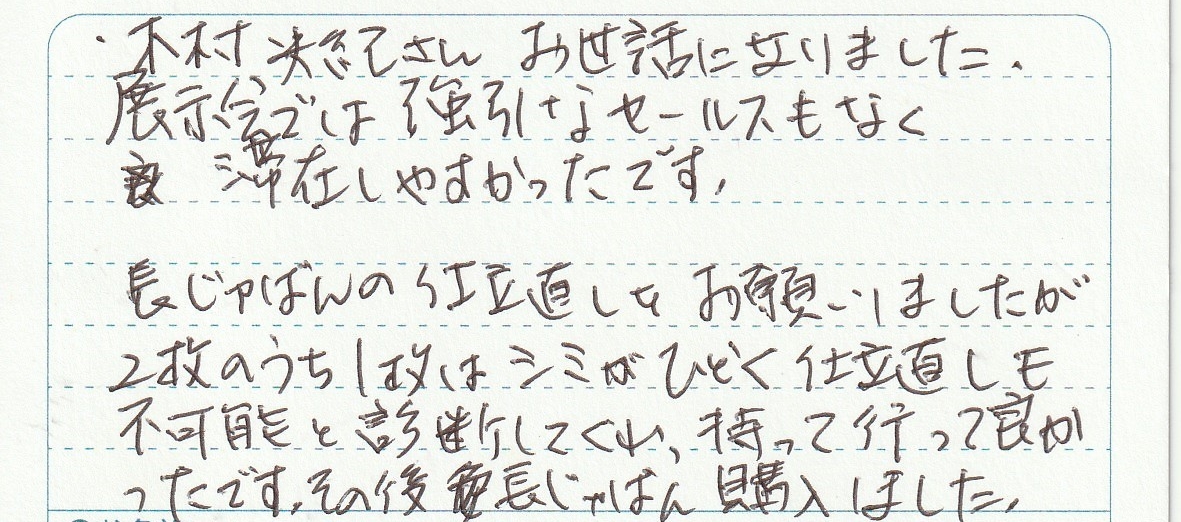 ・木村 さん お世話になりました。
展示会では 強引なセールスもなく
滞在しやすかったです。
長じゅばんの仕立直しを お願いしましたが
2枚のうち1枚は シミがひどく 仕立直しも
不可能と診断してくれ、持って行って良か
ったです。その後 長じゅばん 購入しました。